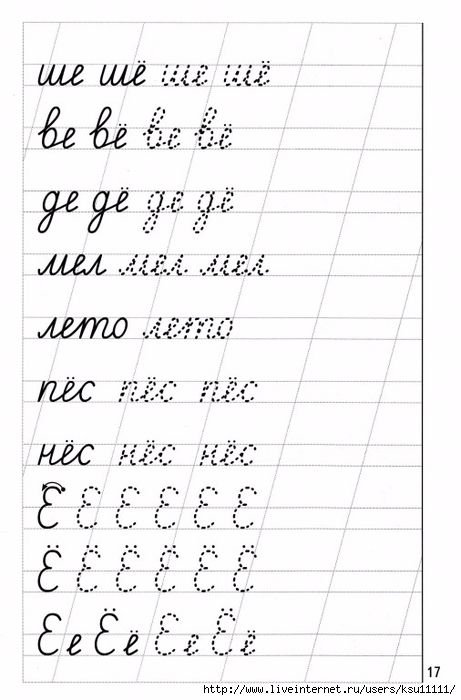 ше шё ше шё
ве вё ве вё
де дё де дё
мел мел мел
лето лето
пёс пёс пёс
нёс нёс нёс
Е Е Е Е Е Е
Ё Ё Ё Ё Ё Ё
Е е Ё ё Е е Ё ё
17
http://www.liveinternet.ru/users/ksu11111/